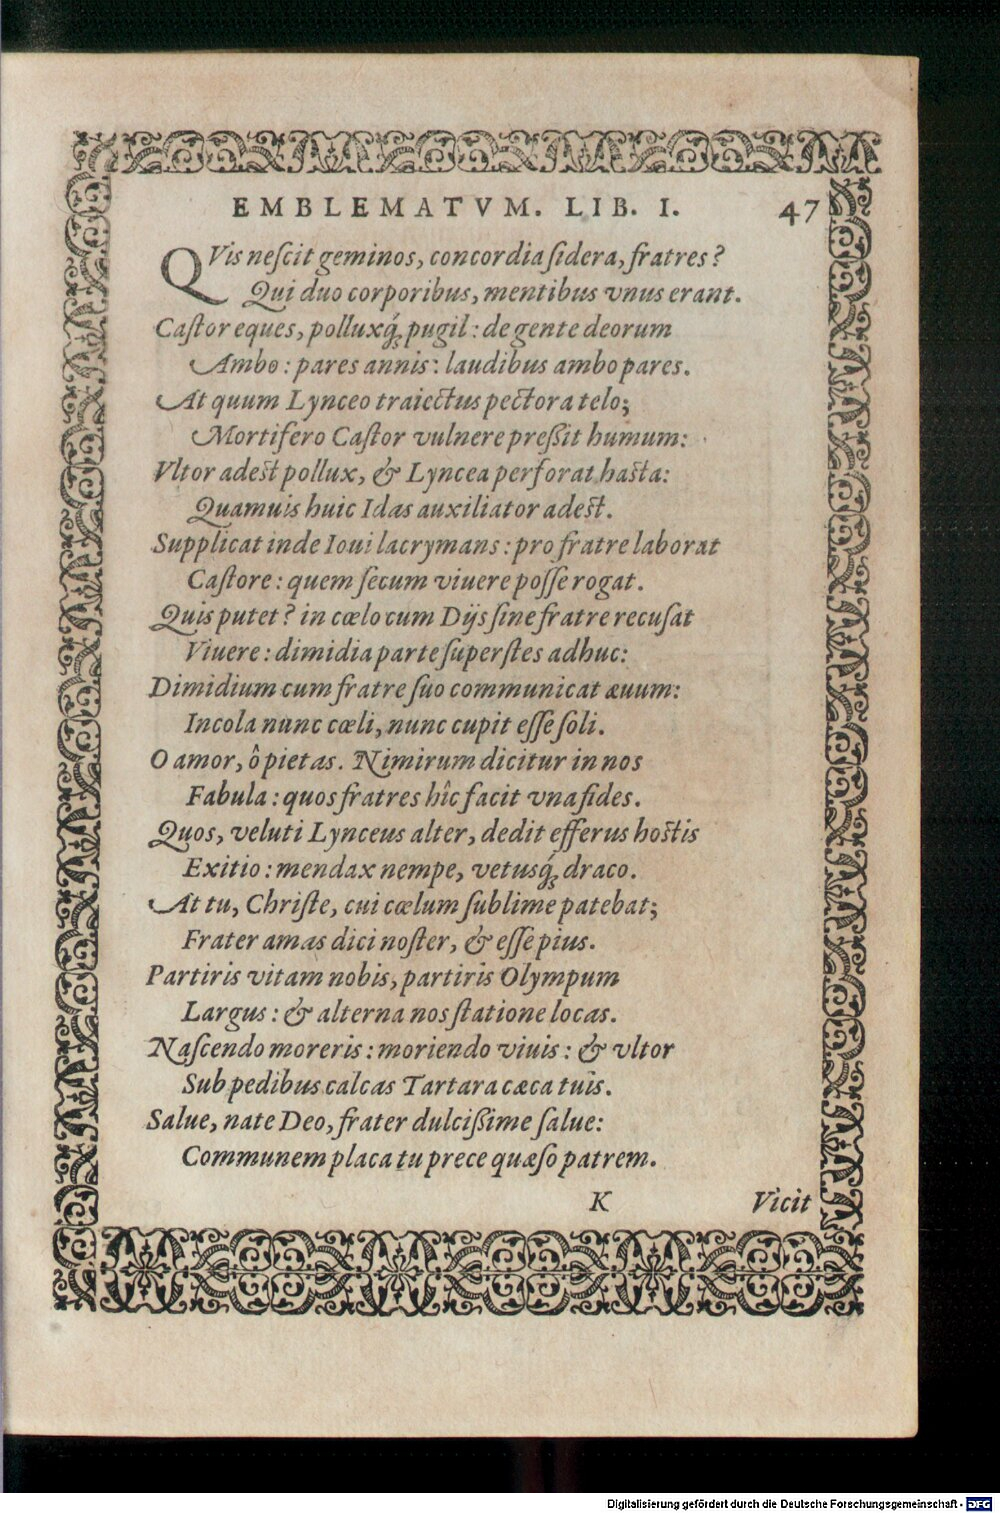 EMBLEMATVM. LIB. I. 47
QVis neſcit geminos, concordia ſidera, fratres?
Qui duo corporibus, mentibus vnus erant.
Caſtor eques, polluxq́; pugil: de gente deorum
Ambo: pares annis: laudibus ambo pares.
At quum Lynceo traiectus pectora telo;
Mortifero Caſtor vulnere preßit humum:
Vltor adest pollux, & Lyncea perforat hasta:
Quamuis huic Idas auxiliator adest.
Supplicat inde Ioui lacrymans: pro fratre laborat
Caſtore: quem ſecum viuere poſſe rogat.
Quis putet? in cœlo cum Dijs ſine fratre recuſat
Viuere: dimidia parte ſuperſtes adhuc:
Dimidium cum fratre ſuo communicat æuum:
Incola nunc cœli, nunc cupit eſſe ſoli.
O amor, ô pietas. Nimirum dicitur in nos
Fabula: quos fratres hîc facit vna fides.
Quos, veluti Lynceus alter, dedit efferus hostis
Exitio: mendax nempe, vetusq́; draco.
At tu, Chriſte, cui cœlum ſublime patebat;
Frater amas dici noſter, & eſſe pius.
Partiris vitam nobis, partiris Olympum
Largus: & alterna nos ſtatione locas.
Naſcendo moreris: moriendo viuis: & vltor
Sub pedibus calcas Tartara cæca tuis.
Salue, nate Deo, frater dulcißime ſalue:
Communem placa tu prece quæſo patrem.
K Vicit
Digitalisierung gefördert durch die Deutsche Forschungsgemeinschaft - DFG